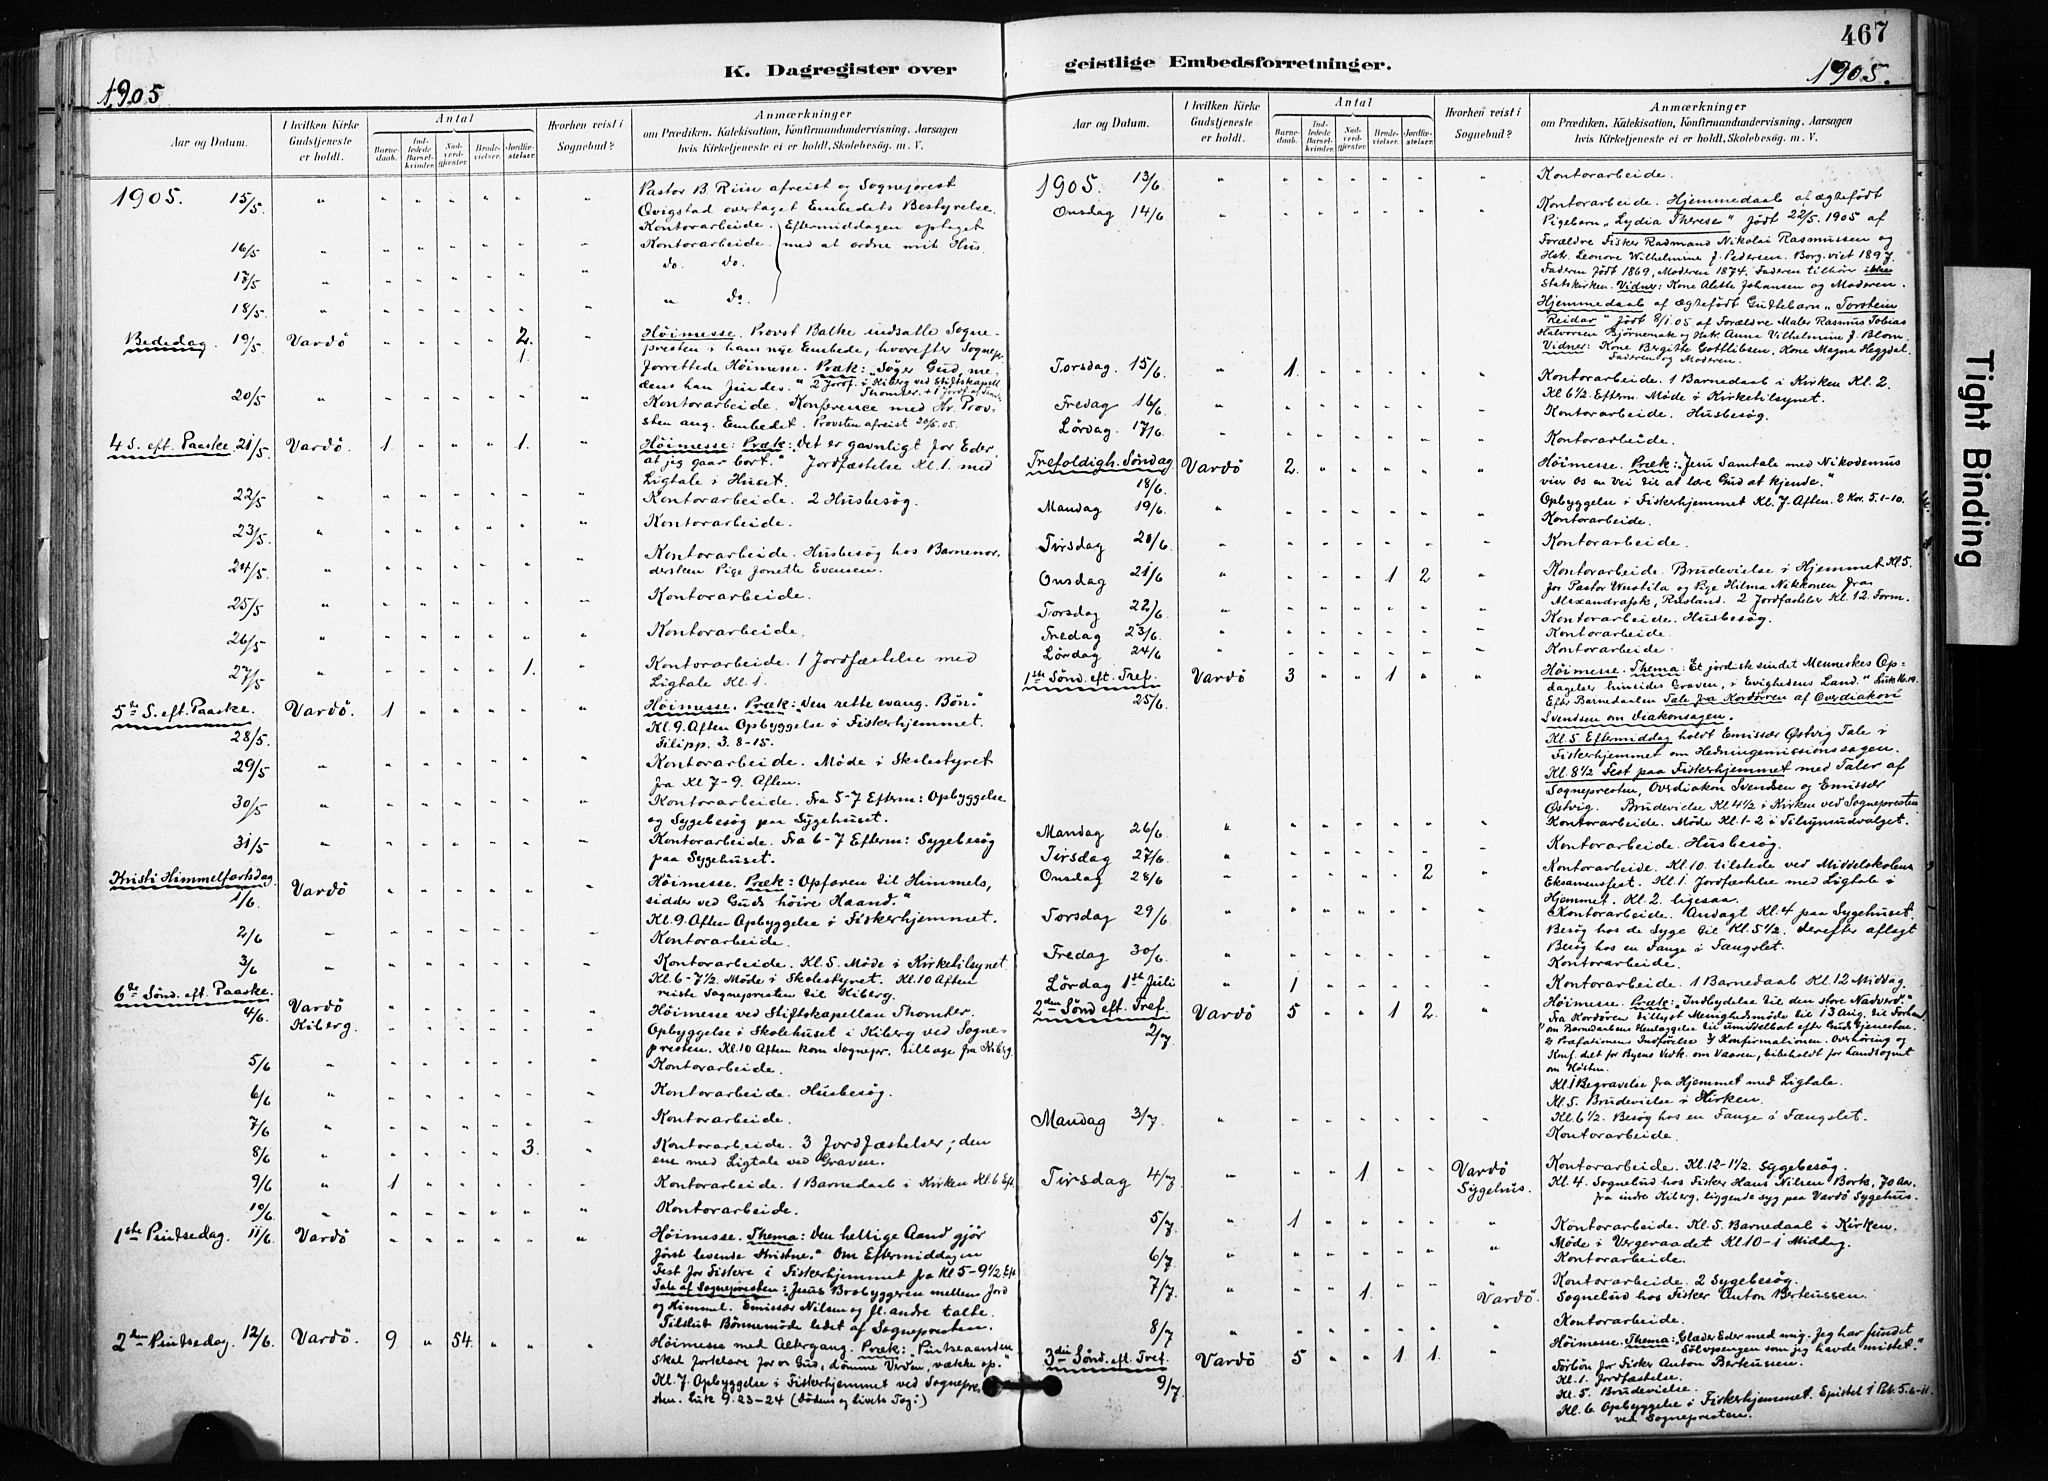 467
K. Dagregister over
geistlige Embedsforretninger.
1905
1905.
Aar og Datum.
I hvilken Kirke Gudstjeneste er holdt.
Antal
Barne-daab.
Ind-ledede Barsel-kvinder.
Nad-verd-gjæster.
Brude-vielser.
Jordfæ-stelser.
Hvorhen reist i Sognebud?
Anmærkninger
om Prædiken, Katekisation, Konfirmandundervisning. Aarsagen
hvis Kirketjeneste ei er holdt, Skolebesøg. m. V.
1905. 15/5 Pastor B. Riise afreist og Sogneprest
Qvigstad overtaget Embedets Bestyrelse.
Kontorarbeide. Eftermiddagen optaget
16/5 Kontorarbeide. med at ordne mit Hus.
17/5 do. do.
18/5 " do.
Bededag 19/5 Vardö 2. Höimesse. Provst Balke indsatte Sogne-
1. presten i hans nye Embede, hvorefter Sognepr.
forrettede Höimesse. Præk: "Söger Gud, me-
dens han findes." 2 Jordf. i Kiberg ved Stiftskapell.
Thomter.
20/5 Kontorarbeide. Konference med Hr. Prov-
sten ang. Embedet. Provsten afreist 20/5 05.
4 S. eft. Paaske 21/5 Vardö. 1 1. Höimesse: Præk: "Det er gavnligt for Eder,
at jeg gaar bort." Jordfæstelse Kl. 1. med
Ligtale i Huset.
22/5 Kontorarbeide. 2 Husbesög.
23/5 Kontorarbeide.
24/5 Kontorarbeide. Husbesög hos Barnemor-
dersken Pige Jonette Evensen.
25/5 Kontorarbeide.
26/5 Kontorarbeide.
27/5 1. Kontorarbeide. 1 Jordfæstelse med
Ligtale Kl. 1.
5te S. eft. Paaske. Vardö. 1 Höimesse. Præk: "Den rette evang. Bön."
28/5 Kl. 9. Aften Opbyggelse i Fiskerhjemmet.
Filipp. 3. 8-15.
29/5 Kontorarbeide. Möde i Skolestyret
fra Kl 7-9. Aften.
30/5 Kontorarbeide. Fra 5-7 Efterm: Opbyggelse
og Sygebesög paa Sygehuset.
31/5 Kontorarbeide. Fra 6-7 Efterm: Sygebesög
paa Sygehuset.
Kristi Himmelfartsdag 1/6. Vardö Höimesse. Præk: Opfaren til Himmels,
sidder ved Guds höire Haand."
Kl. 9. Aften Opbyggelse i Fiskerhjemmet.
2/6 Kontorarbeide.
3/6 Kontorarbeide. Kl. 5. Möde i Kirketilsynet.
Kl. 6-7½. Möde i Skolestyret. Kl. 10 Aften
reiste Sognepresten til Kiberg.
6te Sönd. eft. Paaske. 4/6. Vardö Höimesse ved Stiftskapellan Thomter.
Kiberg. Opbyggelse i Skolehuset i Kiberg ved Sogne-
presten. Kl. 10 Aften kom Sognepr. tilbage fra Kiberg.
5/6 Kontorarbeide.
6/6 Kontorarbeide. Husbesög.
7/6 Kontorarbeide.
8/6 3. Kontorarbeide. 3 Jordfæstelser; den
ene med Ligtale ved Graven.
9/6 1 Kontorarbeide. 1 Barnedaab i Kirken Kl. 6 Eft.
10/6 Kontorarbeide.
1ste Pintsedag. 11/6. Vardö Höimesse. Thema: Den hellige Aand gjör
först levende Kristne." Om Eftermiddagen
Fest for Fiskere i Fiskerhjemmet fra Kl 5-9½ Eft.
Tale af Sognepresten: Jesus Brobyggeren mellem Jord
og Himmel. Emissær Nilsen og fl. andre talte.
Tilslut Bönnemöde ledet af Sognepresten.
2den Pintsedag 12/6. Vardö. 9 54. Höimesse med Altergang. Præk: "Pintseaanden
skal forklare for os Gud, dömme Verden, vække op."
Kl. 7. Opbyggelse i Fiskerhjemmet ved Sognepre-
sten. Luk 9. 23-24 (Dödens og livets Tog:)
Aar og Datum.
I hvilken Kirke Gudstjeneste er holdt.
Antal
Barne-daab.
Ind-ledede Barsel-kvinder.
Nad-verd-gjæster.
Brude-vielser.
Jordfæ-stelser.
Hvorhen reist i Sognebud?
Anmærkninger
om Prædiken, Katekisation, Konfirmandundervisning. Aarsagen
hvis Kirketjeneste ei er holdt, Skolebesøg. m. V.
1905. 13/6. Kontorarbeide.
Onsdag 14/6. Kontorarbeide. Hjemmedaab af ægtefödt
Pigebarn "Lydia Therese" födt 22/5. 1905 af
Forældre Fisker Radmand Nikolai Rasmussen og
Hstr. Leonore Wilhelmine f. Pedersen. Borg. viet 1897.
Faderen födt 1869, Moderen 1874. Faderen tilhörer ikke
Statskirken. Vidner: Kone Alette Johansen og Moderen.
Hjemmedaab af ægtefödt Guttebarn "Torstein
Reidar" födt 8/1. 05 af Forældre Maler Rasmus Tobias
Halvorsen Björnemak og Hstr. Anna Vilhelmine f. Blom.
Vidner: Kone Bergitte Gottlibsen, Kone Magna Heggdal.
Faderen og Moderen.
Torsdag. 15/6. 1. Kontorarbeide. 1 Barnedaab i Kirken Kl. 2.
Kl 6½. Efterm. Möde i Kirketilsynet.
Fredag 16/6. Kontorarbeide. Husbesög.
Lördag. 17/6. Kontorarbeide.
Trefoldigh. Söndag 18/6. Vardö 2. Höimesse. Præk: "Jesu Samtale med Nikodemus
viser os en Vei til at lære Gud at kjende."
Opbyggelse i Fiskerhjemmet Kl. 7. Aften. 2 Kor. 5. 1-10.
Mandag 19/6. Kontorarbeide.
Tirsdag 20/6. Kontorarbeide.
Onsdag 21/6 1 2 Kontorarbeide. Brudevielse i Hjemmet Kl. 5.
for Pastor Wustila og Pige Hilma Nikkonen fra
Alexandrafsk, Rusland. 2 Jordfæstelser Kl. 12. Form.
Torsdag 22/6. Kontorarbeide. Husbesög.
Fredag 23/6. Kontorarbeide.
Lördag 24/6 Kontorarbeide.
1ste Sönd. eft. Tref. 25/6. Vardö 3 1 Höimesse. Thema: Et jordisk sindet Menneskes Op-
dagelser hinsides Graven, i Evighedens Land." Luk 16. 19.
Efter Barnedaaben Tale fra Kordören af Overdiakon
Svendsen om Diakonsagen.
Kl. 5 Eftermiddag holdt Emissær Østvig Tale i
Fiskerhjemmet om Hedningemissionssagen.
Kl. 8½ Fest paa Fiskerhjemmet med Taler af
Sognepresten, Overdiakon Svendsen og Emissær
Østvig. Brudevielse Kl 4½ i Kirken ved Sognepresten
Mandag 26/6. Kontorarbeide. Möde Kl. 1-2 i Tilsynsudvalget.
Tirsdag 27/6. Kontorarbeide. Husbesög.
Onsdag 28/6 2 Kontorarbeide. Kl. 10. tilstede ved Middelskolens
Eksamensfest. Kl. 1. Jordfæstelse med Ligtale i
Hjemmet. Kl. 2. ligesaa.
Torsdag 29/6. Kontorarbeide. Andagt Kl. 4 paa Sygehuset.
Besög hos de Syge til Kl. 5½. Derefter aflagt
Besög hos en Fange i Fængslet.
Fredag 30/6. Kontorarbeide.
Lördag 1ste Juli 1 Kontorarbeide. 1 Barnedaab Kl. 12 Middag.
2den Sönd eft. Tref. 2/7. Vardö 5 1 2. Höimesse. Præk: "Indbydelse til den store Nadverd."
Fra Kordören tillyst Menighedsmöde til 13 Aug. til Forhandl.
om Barnedaabens Henlæggelse til umiddelbart efter Gudstjenesten.
2 Præfationens Indförelse 3/ Konfirmationen. Overhöring og
Konf. det for Byens Vedk. om Vaaren, bibeholdt for Landsognet
om Hösten.
Kl 1 Begravelse fra Hjemmet med Ligtale.
Kl. 5. Brudevielse i Kirken.
Kl. 6½. Besög hos en Fange i Fængslet.
Mandag 3/7. Kontorarbeide.
Tirsdag 4/7 1 Vardö Sygehus. Kontorarbeide. Kl. 12-1½ Sygebesög.
Kl. 4. Sognebud hos Fisker Hans Nilsen Bork, 70 Aar.
fra indre Kiberg, liggende syg paa Vardö Sygehus.
5/7. 1 Kontorarbeide. Kl. 5. Barnedaab i Kirken.
Möde i Vergeraadet Kl 10-1 Middag.
6/7 Kontorarbeide.
7/7. 1. Vardö. Kontorarbeide. 2 Sygebesög.
Sognebud hos Fisker Anton Berteussen.
8/7 Kontorarbeide.
3die Sönd. eft. Tref. 9/7. Vardö 5 1 1. Höimesse. Thema: Glæder Eder med mig. Jeg har fundet
Sölvpengen som jeg havde mistet."
Forbön for Fisker Anton Berteussen.
Kl. 1. Jordfæstelse.
Kl. 5. Brudevielse.
Kl. 6. Opbyggelse i Fiskerhjemmet. Epistel 1 Pet. 5. 6-11.
ved Sognepresten.
Tight Binding